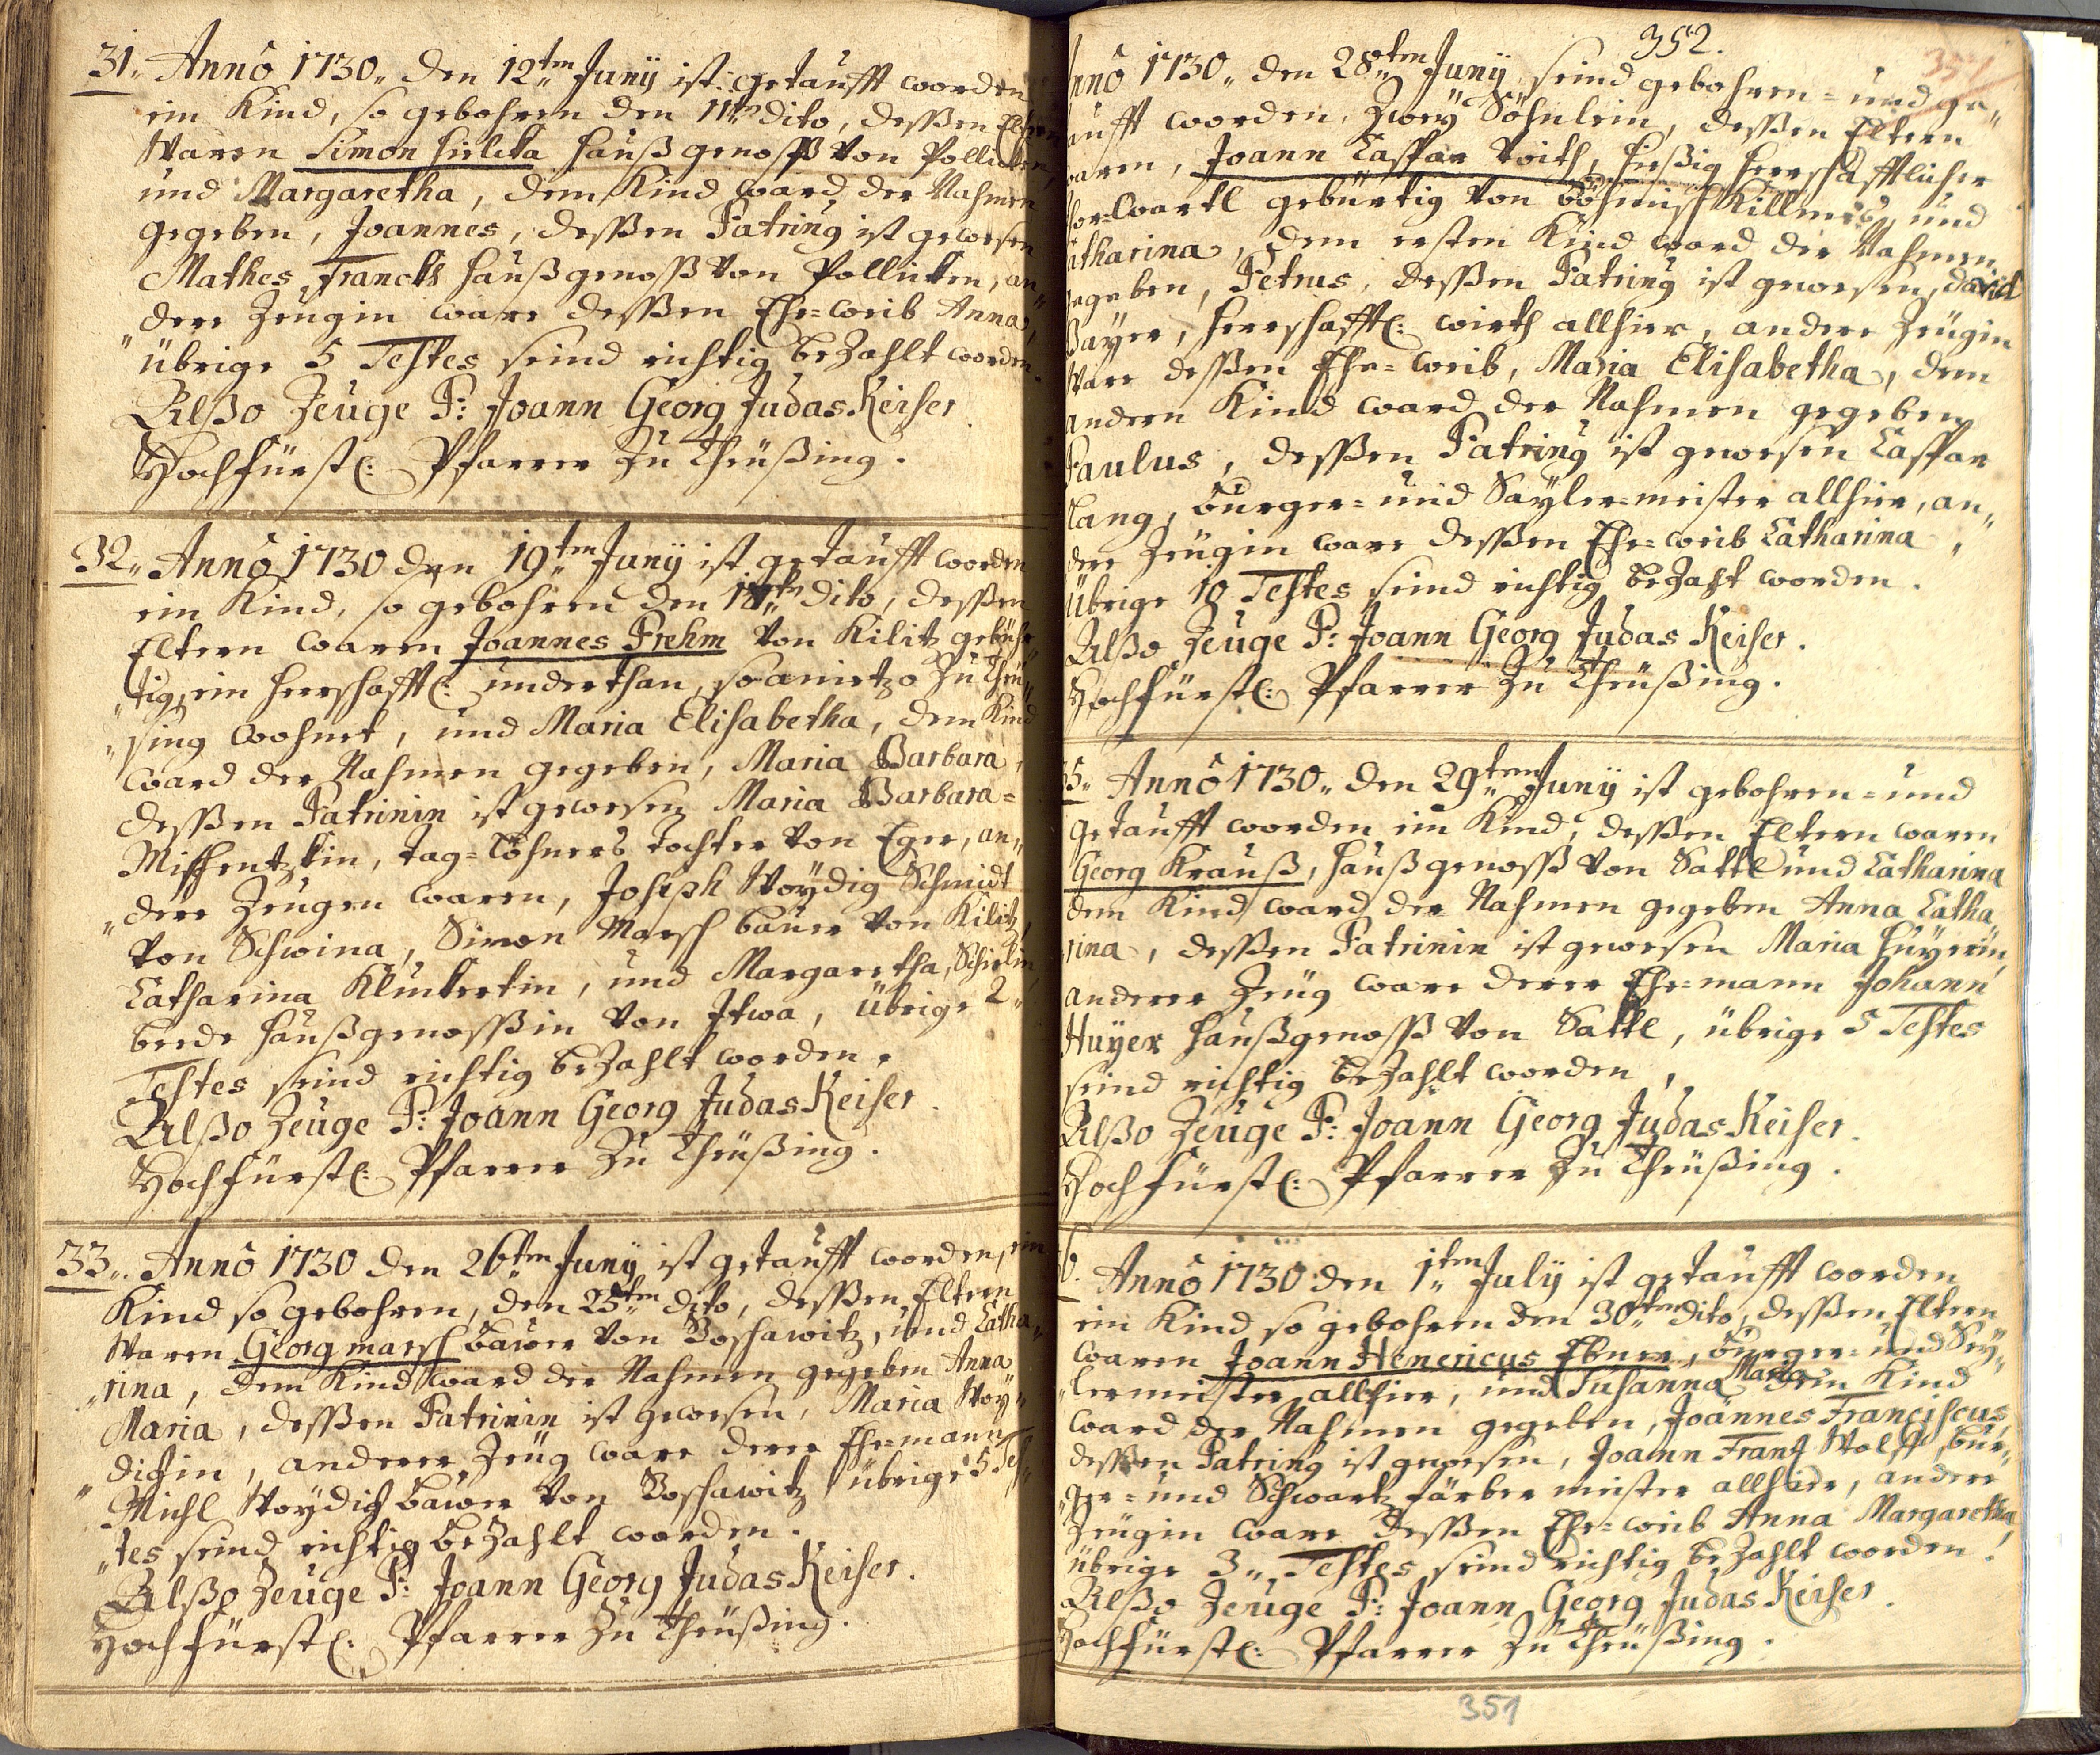 31. Anno 1730 den 12ten Junÿ ist getaufft worden
ein Kind, so gebohren den 11ten dito, deßen Eltern
Waren Simon haußgenoß von Pollicken,
und Margaretha, dem Kind ward der Nahmen
gegeben, Joannes, deßen Patrinus ist gewesen
Mathes Franckh haußgenoß von Pollicken, an„
„dere Zeugin ware deßen Ehe=weib Anna,
übrige 5 Testes seind richtig bezahlt worden.
Alßo Zeuge P: Joann Georg Judas Keiser
Hochfürstl: Pfarrer zu Theüßing.
32. Anno 1730 den 19ten Junÿ ist getaufft worden
ein Kind, so gebohren den 18ten dito, deßen
Eltern waren Joannes Prehm von Kilitz gebühr„
„tig, ein herrschafftl: underthan, so anietzo zu Theü„
„sing wohnet, und Maria Elisabetha, dem Kind
ward der Nahmen gegeben, Maria Barbara,
deßen Patrinin ist gewesen Maria Barbara=
tag=löhners tochter von Eger, an„
„dere Zeugen waren, Joseph Woÿdig Schmidt
von Schwina, Simon Marsch baur von Kilitz,
Catharina und Margaretha,
beede haußgenoßin von Itwa, übrige 2
Testes seind richtig bezahlt worden.
Alßo Zeuge P: Joann Georg Judas Keiser.
Hochfürstl: Pfarrer zu Theüßing.
33. Anno 1730 den 26ten Junÿ ist getaufft worden, ein
Kind so gebohren, den 25ten dito, deßen Eltern
Waren Georg marsch bawer von Boschawitz, und Catha„
„rina, dem Kind ward der Nahmen gegeben Anna
Maria, deßen Patrinin ist gewesen, Maria Woÿ„
„dichin, anderer Zeug ware derer Ehemann
Michl Woÿdich bawer von Boschawitz übrige 5 Tes„
„tes seind richtig bezahlt worden.
Alßo Zeuge P: Joann Georg Judas Keiser.
Hochfürstl: Pfarrer zu Theüßing.
352.
351
Anno 1730 den 28ten Junÿ seind gebohren= und ge„
taufft worden, Zweÿ Söhnlein, deßen Eltern
waren, Joann Caspar Voith, hießig herrschafftlicher
gebürtig von böhmisch und
Catharina, dem ersten Kind ward der Nahmen
gegeben, Petrus, deßen Patrinus ist gewesen, David
Baÿer, herrschafftl: wirth allhier, andere Zeugin
Ware deßen Ehe=weib, Maria Elisabetha, dem
andern Kind ward der Nahmen gegeben
Paulus, deßen Patrinus ist gewesen Caspar
Lang, burger= und Saÿler=meister allhier, an„
dere Zeugin ware deßen Ehe=weib Catharina,
übrige 10 Testes seind richtig bezahlt worden.
Alßo Zeuge P: Joann Georg Judas Keiser.
Hochfürstl: Pfarrer zu Theüßing.
35. Anno 1730 den 29ten Junÿ ist gebohren= und
getaufft worden ein Kind, deßen Eltern waren
Georg Krauß, haußgenoß von Sattl und Catharina
dem Kind ward der Nahmen gegeben Anna Catha
rina, deßen Patrinin ist gewesen Maria Huÿerin,
anderer Zeug ware derer Ehe=mann Johann
Huÿer haußgenoß von Sattl, übrige 5 Testes
seind richtig bezahlt worden,
Alßo Zeuge P: Joann Georg Judas Keiser.
Hochfürstl: Pfarrer zu Theüßing.
36. Anno 1730 den 1ten Julÿ ist getaufft worden
ein Kind so gebohren den 30ten dito, deßen Eltern
waren Joann Henericus Ebner, burger= und Seÿ„
„lermeister allhier, und Susanna Maria dem Kind
ward der Nahmen gegeben, Joannes Franciscus,
deßen Patrinus ist gewesen, Joann Frantz Wolff, bur„
„ger= und Schwartz färber meister allhier, andere
Zeugin ware deßen Ehe=weib Anna Margaretha,
übrige 3 Testes seind richtig bezahlt worden.
Alßo Zeuge P: Joann Georg Judas Keiser.
Hochfürstl: Pfarrer zu Theüßing.
351